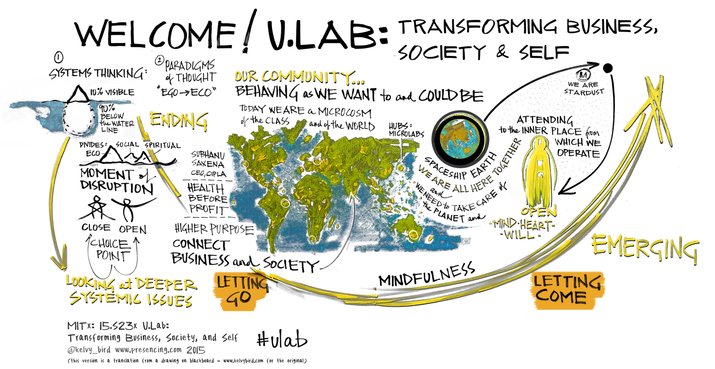 WELCOME! U.LAB:
TRANSFORMING BUSINESS,
SOCIETY & SELF
1
SYSTEMS THINKING:
10% VISIBLE
90%
BELOW
the WATER
LINE
DIVIDES: SOCIAL SPIRITUAL
ECO
MOMENT of
DISRUPTION
CLOSE OPEN
CHOICE
POINT
LOOKING at DEEPER
SYSTEMIC ISSUES
2 PARADIGMS
of THOUGHT
"EGO→ECO"
ENDING
SUBHANU
SAXENA
CEO, CIPLA
HEALTH
BEFORE
PROFIT
HIGHER PURPOSE
CONNECT
BUSINESS and SOCIETY
OUR COMMUNITY...
BEHAVING as WE WANT to and COULD BE
TODAY WE ARE a MICROCOSM
of the CLASS and of the WORLD
HUBS:
MICROLABS
SPACESHIP EARTH
WE ARE ALL HERE TOGETHER
and
WE NEED to TAKE CARE of
the PLANET and
WE ARE
STARDUST
ATTENDING
to the INNER PLACE from
WHICH WE
OPERATE
OPEN
-MIND-HEART-
-WILL-
EMERGING
LETTING
GO
MINDFULNESS
LETTING
COME
MITx: 15.S23x U.Lab:
Transforming Business, Society, and Self
@kelvy_bird www.presencing.com 2015
#ulab
(this version is a translation from a drawing on blackboard - www.kelvybird.com for the original)